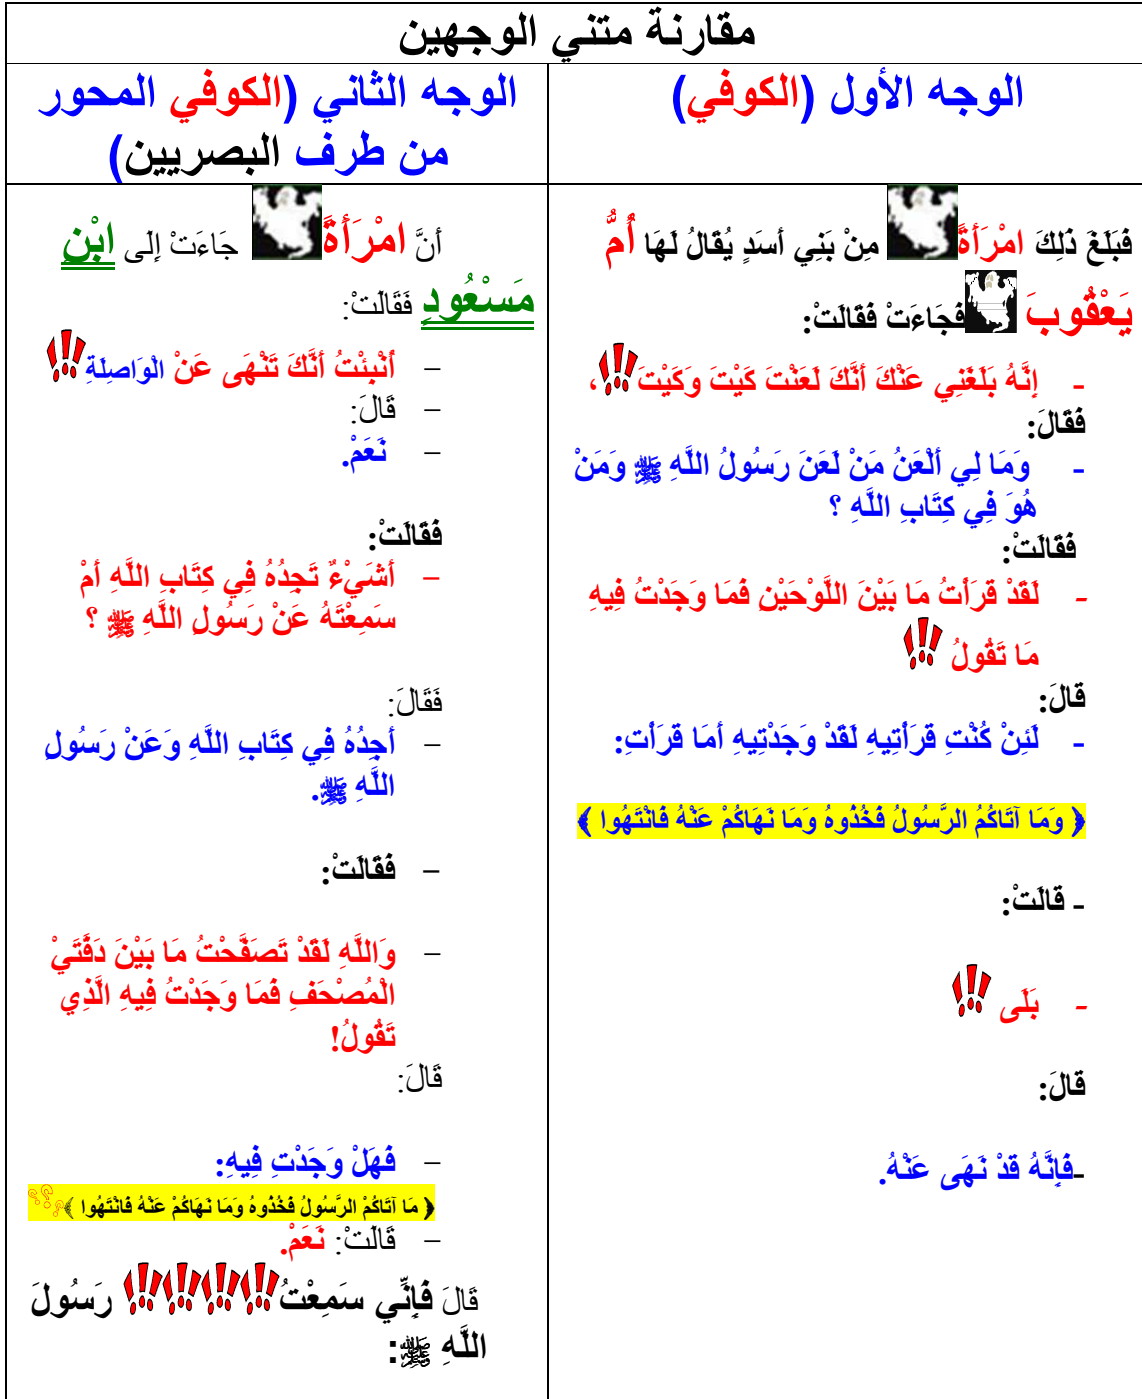 مقارنة متني الوجهين
الوجه الأول (الكوفي)
فَبَلَغَ ذَلِكَ امْرَأَةً مِنْ بَنِي أَسَدٍ يُقَالُ لَهَا أُمُّ
يَعْقُوبَ فَجَاءَتْ فَقَالَتْ:
- إِنَّهُ بَلَغَنِي عَنْكَ أَنَّكَ لَعَنْتَ كَيْتَ وَكَيْتَ!!!،
فَقَالَ:
- وَمَا لِي أَلْعَنُ مَنْ لَعَنَ رَسُولُ اللَّهِ ﷺ وَمَنْ
هُوَ فِي كِتَابِ اللَّهِ ؟
فَقَالَتْ:
- لَقَدْ قَرَأْتُ مَا بَيْنَ اللَّوْحَيْنِ فَمَا وَجَدْتُ فِيهِ
مَا تَقُولُ !!!
قَالَ:
- لَئِنْ كُنْتِ قَرَأْتِيهِ لَقَدْ وَجَدْتِيهِ أَمَا قَرَأْتِ:
﴿ وَمَا آتَاكُمُ الرَّسُولُ فَخُذُوهُ وَمَا نَهَاكُمْ عَنْهُ فَانْتَهُوا ﴾
- قَالَتْ:
- بَلَى !!!
قَالَ:
-فَإِنَّهُ قَدْ نَهَى عَنْهُ.
الوجه الثاني (الكوفي المحور
من طرف البصريين)
أَنَّ امْرَأَةً جَاءَتْ إِلَى ابْنِ
مَسْعُودٍ فَقَالَتْ:
– أُنْبِئْتُ أَنَّكَ تَنْهَى عَنْ الْوَاصِلَةِ!!!
– قَالَ:
– نَعَمْ.
فَقَالَتْ:
– أَشَيْءٌ تَجِدُهُ فِي كِتَابِ اللَّهِ أَمْ
سَمِعْتَهُ عَنْ رَسُولِ اللَّهِ ﷺ ؟
فَقَالَ:
– أَجِدُهُ فِي كِتَابِ اللَّهِ وَعَنْ رَسُولِ
اللَّهِ ﷺ.
– فَقَالَتْ:
– وَاللَّهِ لَقَدْ تَصَفَّحْتُ مَا بَيْنَ دَفَّتَيْ
الْمُصْحَفِ فَمَا وَجَدْتُ فِيهِ الَّذِي
تَقُولُ!
قَالَ:
– فَهَلْ وَجَدْتِ فِيهِ:
﴿ مَا آتَاكُمْ الرَّسُولُ فَخُذُوهُ وَمَا نَهَاكُمْ عَنْهُ فَانْتَهُوا ﴾؟؟؟
– قَالَتْ: نَعَمْ.
قَالَ فَإِنِّي سَمِعْتُ!!!!!!!!!!!! رَسُولَ
اللَّهِ ﷺ: